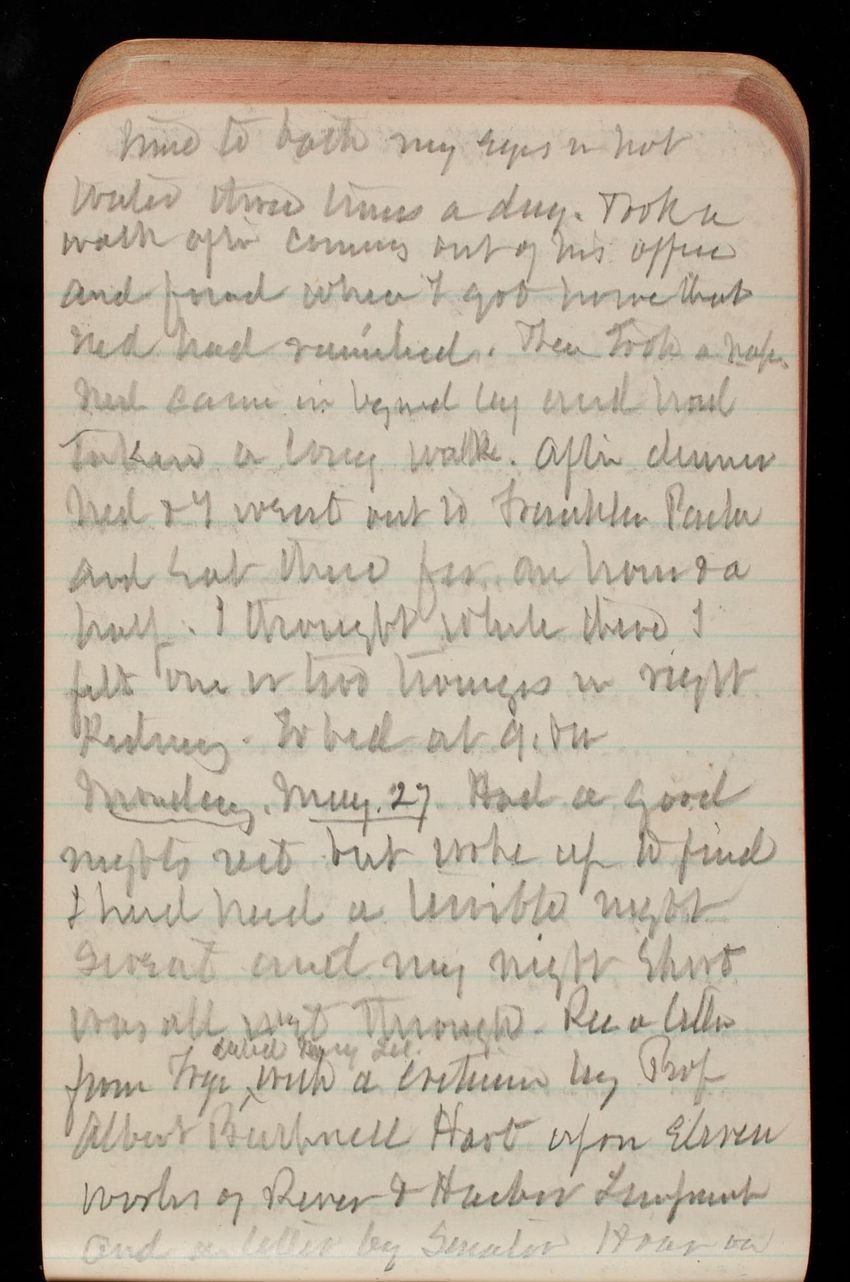 time to bathe my eyes in hot
water three times a day. Took a
walk after coming out of his office
and found when I got home that
Ned had vanished. Then took a nap.
Ned came in by and by and had
taken a long walk. After dinner
Ned & I went out to Franklin Park
and sat there for an hour & a
half. I thought while there I
felt one or two twinges in right
Kidney. To bed at
Monday. May. 27 Had a good
nights rest but woke up to find
I had had a terrible night
sweat and my night shirt
was all wet through. Rec a letter
from with a lecture by Prof
Albert Bushnell Hart upon Eleven
works of River & Harbor
and a letter by Senator Hoar on